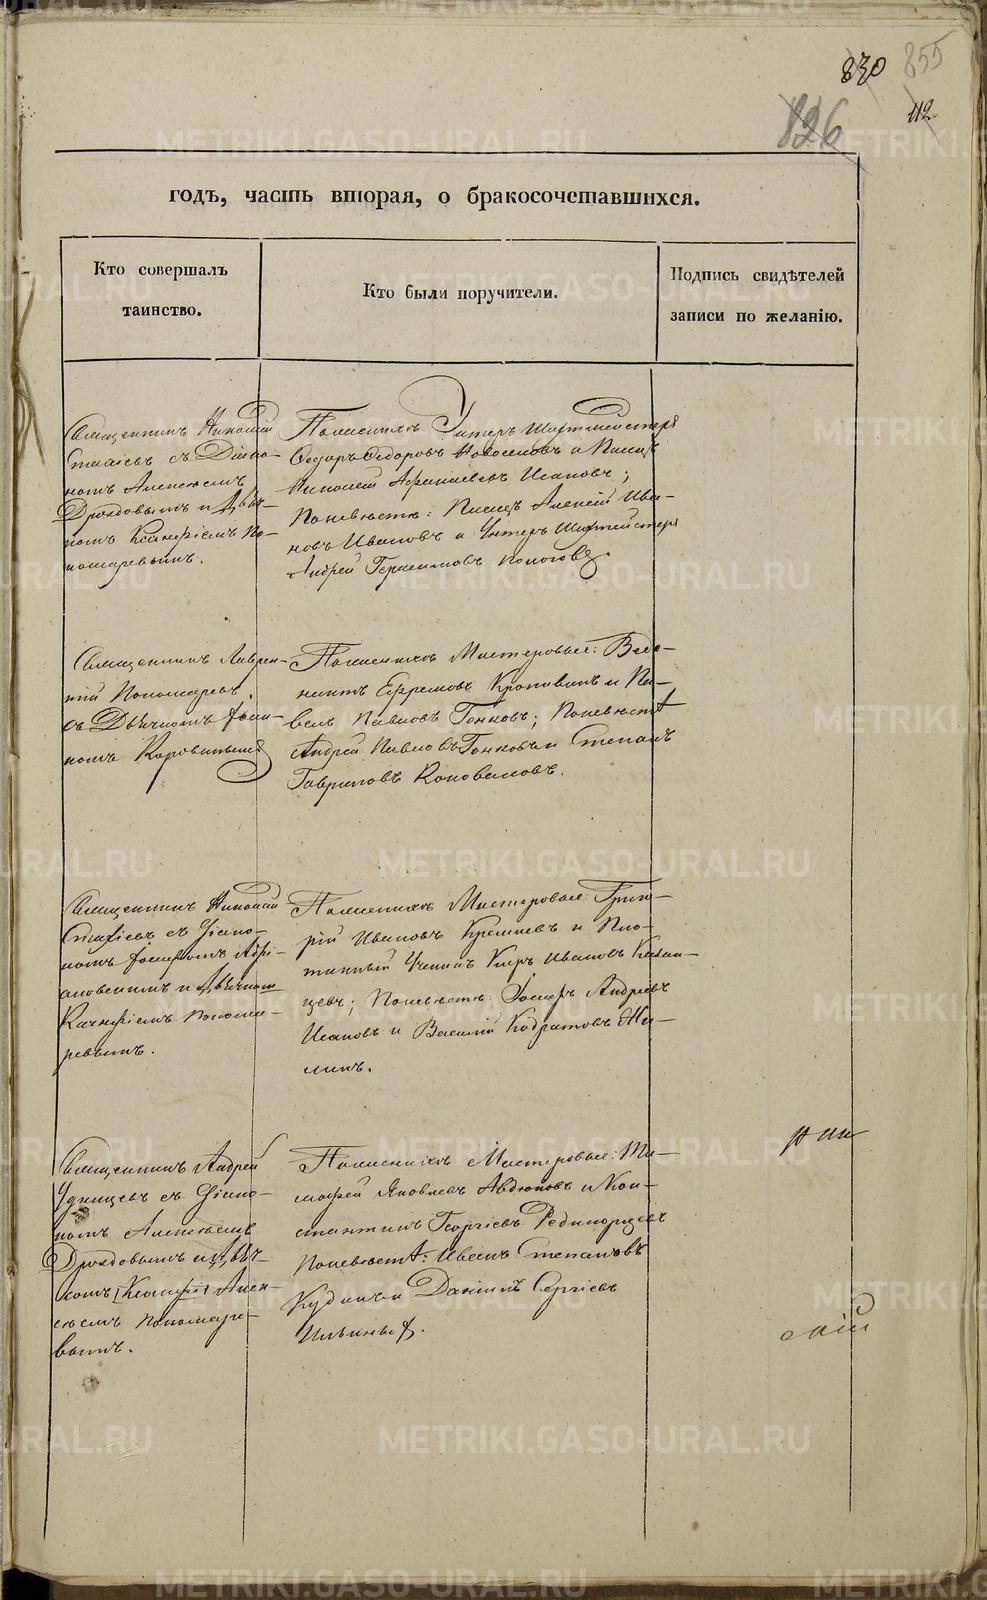 830 855
826 112
годъ, часть вторая, о бракосочетавшихся.
Кто совершалъ
таинство.
Кто были поручители.
Подпись свидѣтелей
записи по желанію.
Священникъ Николай
Стахіевъ съ Діако-
номъ Алексѣемъ
Дроздовымъ и Дьяч-
комъ Ксенофонтомъ По-
номаревымъ.
По женихѣ Унтеръ Шихтмейстеръ
Ѳедоръ Ѳедоровъ Новоселовъ и Писецъ
Николай Афанасьевъ Исаковъ;
По невѣстѣ: Писецъ Алексѣй Ива-
новъ Ивановъ и Унтеръ Шихтмейстеръ
Андрей Герасимовъ
Священникъ Лаврен-
тій Пономаревъ,
съ Дьячкомъ Іоан-
номъ Коровинымъ
По женихѣ Мастеровые: Веде-
никтъ Ефремовъ Кропивинъ и Па-
велъ Павловъ Гонковъ; По невѣстѣ
Андрей Павловъ Гонковъ и Степанъ
Гавриловъ Коноваловъ.
Священникъ Николай
Стахіевъ съ Діако-
номъ Іосифомъ Адрі-
ановскимъ и Дьячкомъ
Понома-
ревымъ.
По женихѣ Мастеровые: Григо-
рій Ивановъ Кремлевъ и Пло-
тинный Ученикъ Киръ Ивановъ Казан-
цевъ; По невѣстѣ: Іосифъ Андреевъ
Исаковъ и Василій Кодратовъ Жи-
линъ.
Священникъ Андрей
Удинцевъ съ Діако-
номъ Алексѣемъ
Дроздовымъ и Дьяч-
комъ Алек-
сѣемъ Пономаре-
вымъ.
По женихѣ Мастеровые: Ти-
мофей Яковлевъ Авдюковъ и Кон-
стантинъ Георгіевъ Редикорцевъ
По невѣстѣ: Иванъ Степановъ
Кудинъ и Даніилъ Сергіевъ
Ильиныхъ.